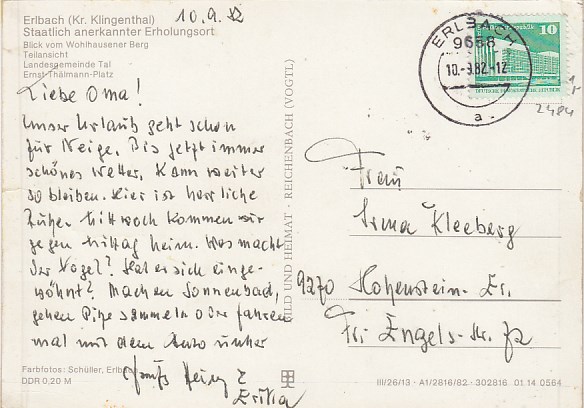 Erlbach (Kr. Klingenthal)
Staatlich anerkannter Erholungsort
Blick vom Wohlhausener Berg
Teilansicht
Landesgemeinde Tal
Ernst-Thälmann-Platz
10.9.82
Liebe Oma!
Unser Urlaub geht schon
zur Neige. Bis jetzt immer
schönes Wetter. Kann weiter
so bleiben. Hier ist herrliche
Ruhe. Mittwoch kommen wir
gegen Mittag heim. Was macht
der Vogel? Hat er sich einge-
wöhnt? Machen Sonnenbad,
gehen Pilze sammeln oder fahren
mal mit dem Auto umher
Heinz &
Erika
Farbfotos: Schüller, Erlbach
DDR 0,20 M
BILD UND HEIMAT · REICHENBACH (VOGTL)
ERLBACH
9658
10.-9.82.-12
a
10
2484
Frau
Irma Kleeberg
9270 Hohenstein-Er.
Fri Engels-Str. 72
III/26/13 · A1/2816/82 · 302816 01 14 0564